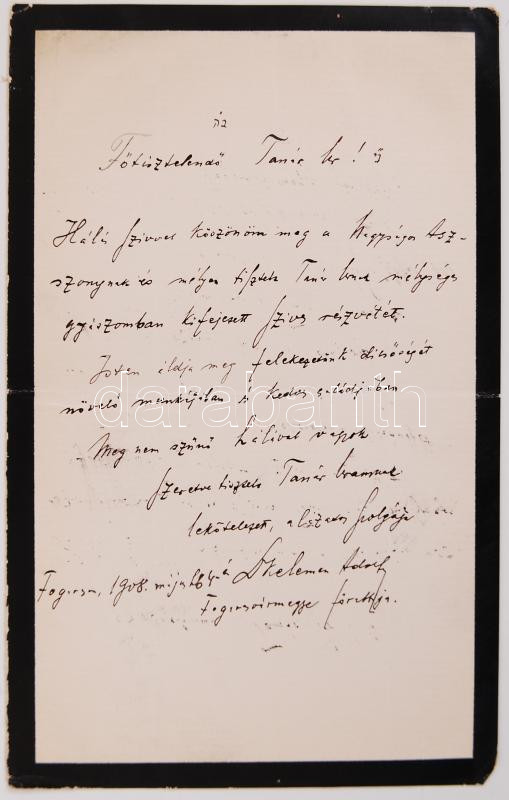 ב״ה
Főtisztelendő Tanár Ur!
Hálás szivvel köszönöm meg a Nagyságos Asz-
szonynak és mélyen tisztelt Tanár Urnak mélységes
gyászomban kifejezett szives részvétét.
Isten áldja meg felekezetünk dicsőségét
növelő munkájában és kedves családjában
Meg nem szünő hálával vagyok
szeretve tisztelt Tanár Uramnak
lekötelezett, alázatos szolgája
Fogaras, 1908. május Dr Kelemen Adolf
Fogarasvármegye főrabbija.
darabanth